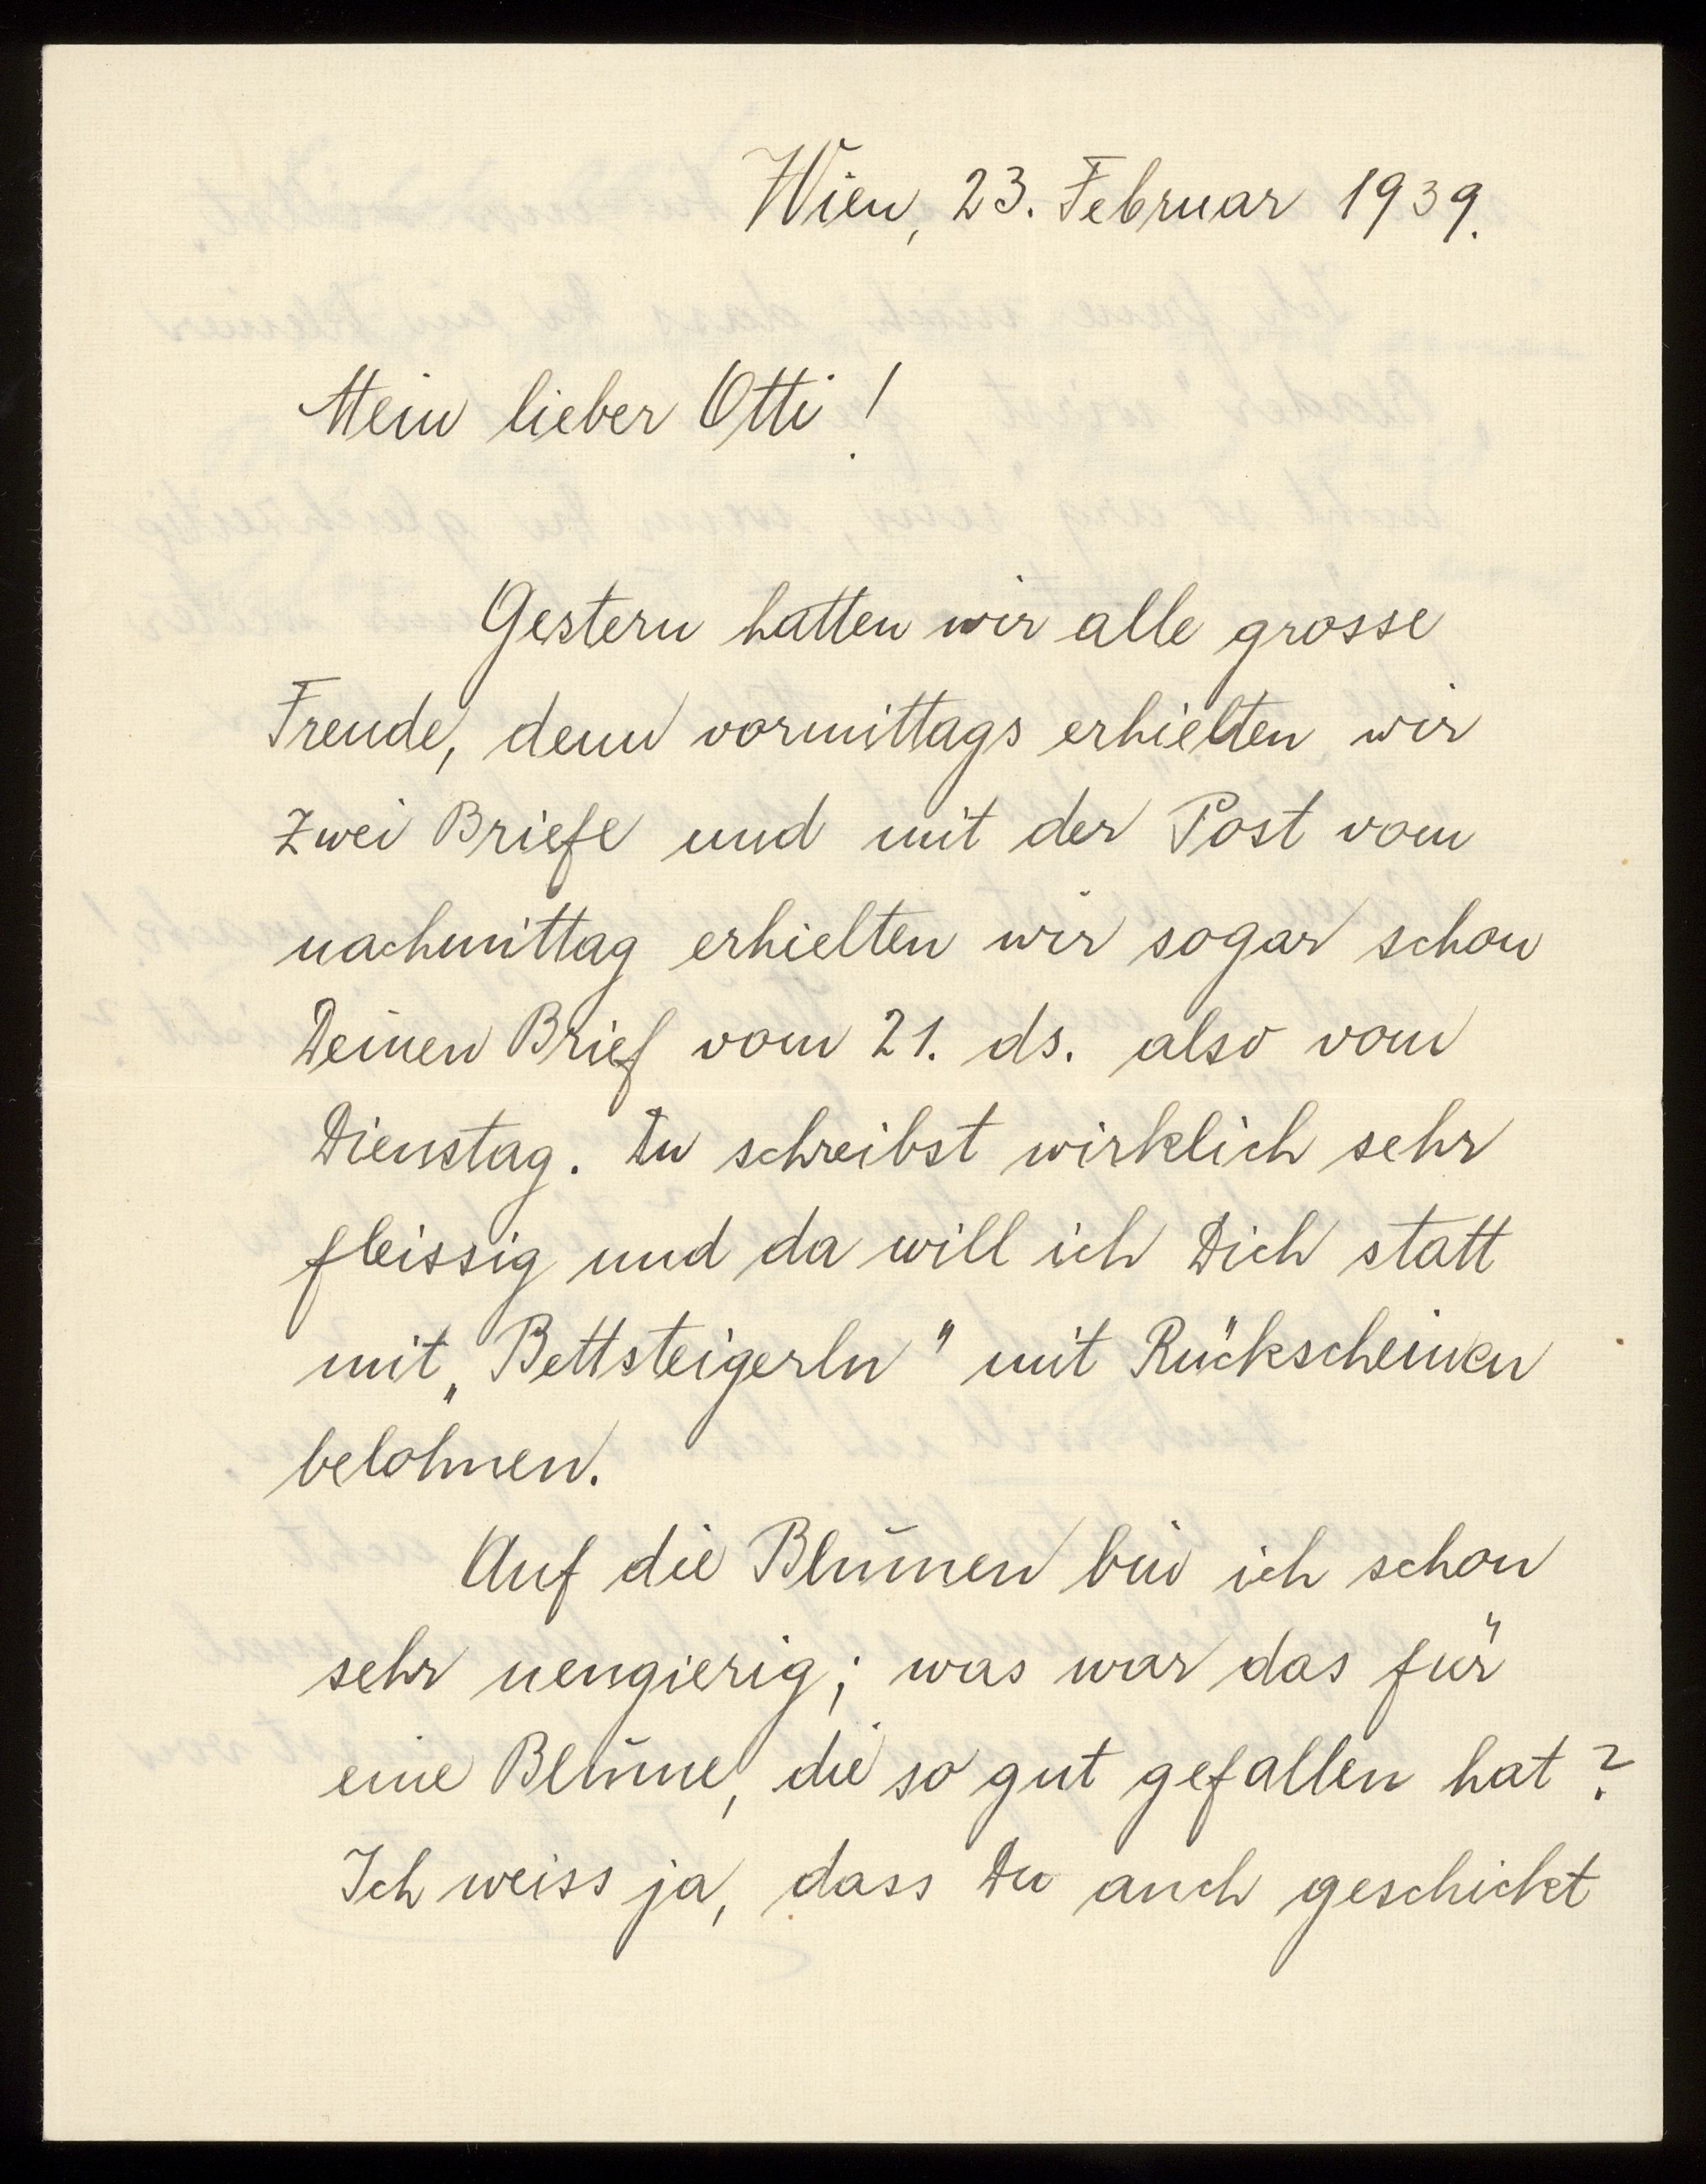 Wien, 23. Februar 1939.
Mein lieber Otti!
Gestern hatten wir alle grosse
Freude, denn vormittags erhielten wir
zwei Briefe und mit der Post vom
nachmittag erhielten wir sogar schon
Deinen Brief vom 21. ds. also vom
Dienstag. Du schreibst wirklich sehr
fleissig und da will ich Dich statt
mit „Bettsteigerln" mit Rückscheinen
belohnen.
Auf die Blumen bin ich schon
sehr neugierig; was war das für
eine Blume, die so gut gefallen hat?
Ich weiss ja, dass Du auch geschickt